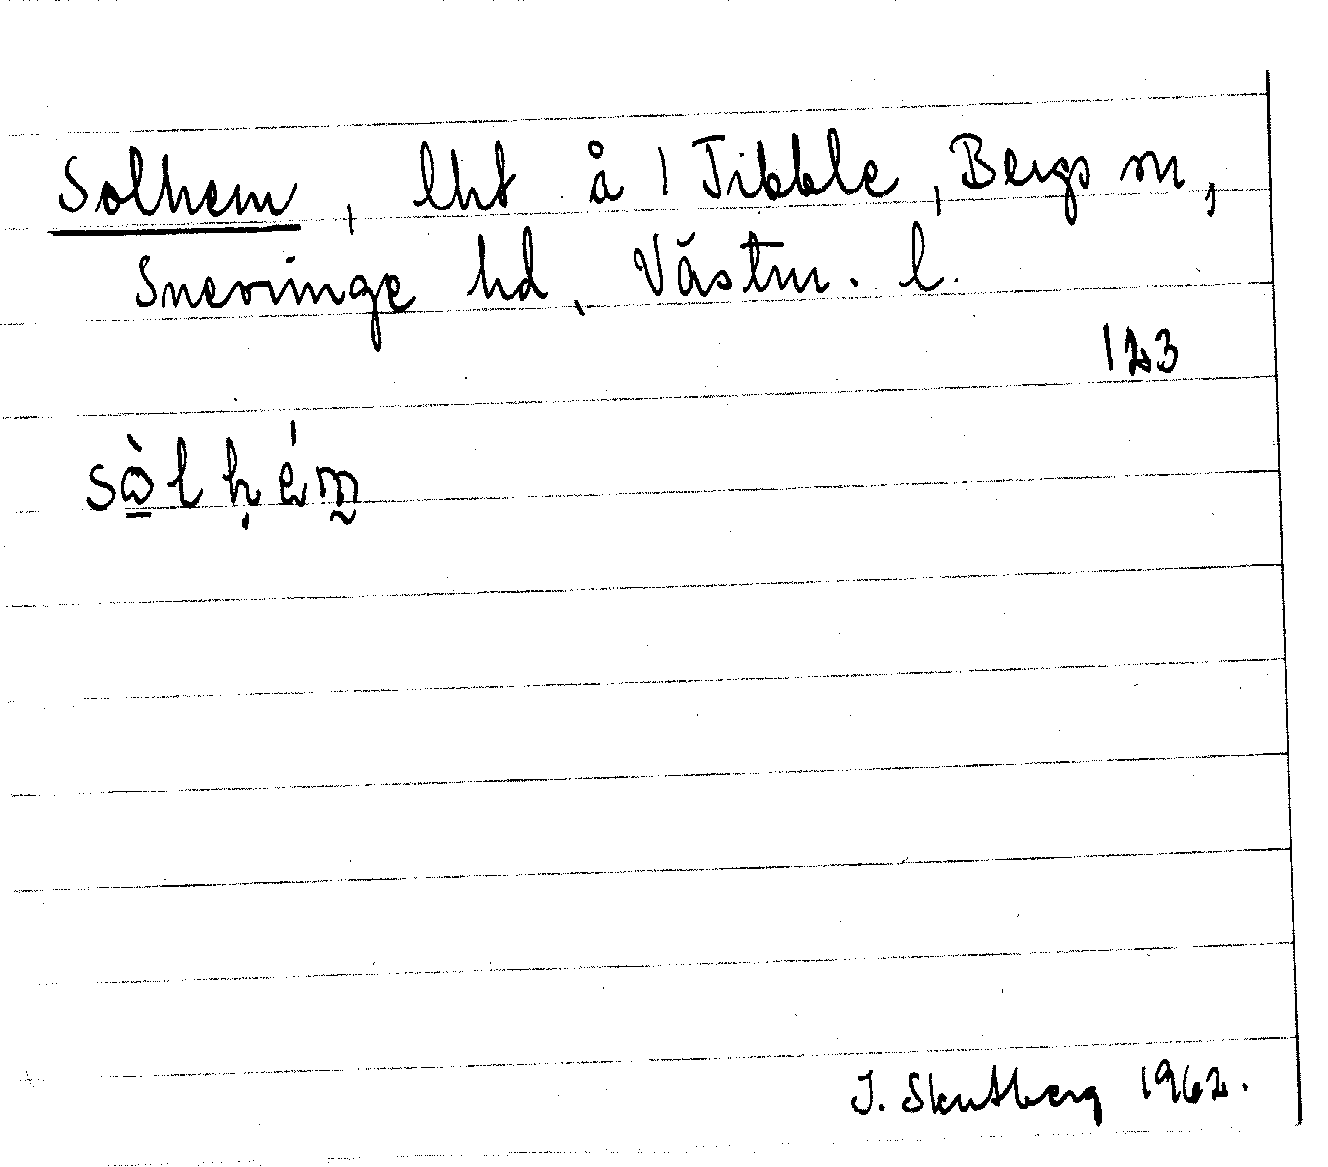 Solhem, lht å 1 Tibble, Bergs sn,
Snevringe hd, Västm. l.
123
sὼlḥém̰
J. Skutberg 1962.